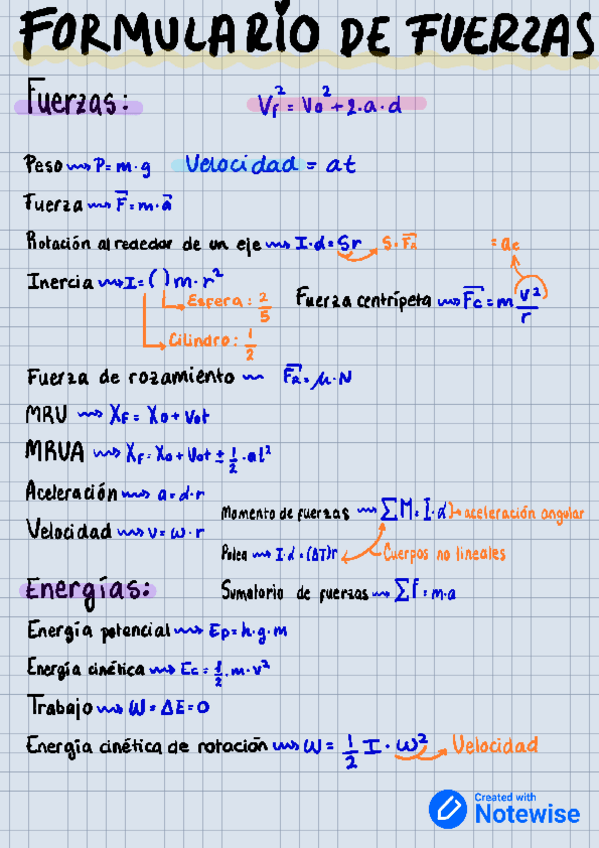 FORMULARIO DE FUERZAS
Fuerzas:
Vf² = Vo² + 2·a·d
Peso ⟿ P = m·g
Velocidad = at
Fuerza ⟿ F⃗ = m·a⃗
Rotación alrededor de un eje ⟿ I·α = Sr → S·F⃗R
Inercia ⟿ I = ( ) m·r²
Esfera: 2/5
Cilindro: 1/2
= ac
Fuerza centrípeta ⟿ F⃗c = m v²/r
Fuerza de rozamiento ⟿ F⃗R = μ·N
MRU ⟿ Xf = Xo + Vot
MRVA ⟿ Xf = Xo + Vot ± 1/2 · at²
Aceleración ⟿ a = α·r
Velocidad ⟿ v = ω·r
Momento de fuerzas ⟿ ΣM = I·α → aceleración angular
Polea ⟿ I·α = (ΔT)r
Cuerpos no lineales
Sumatorio de fuerzas ⟿ Σf = m·a
Energías:
Energía potencial ⟿ Ep = h·g·m
Energía cinética ⟿ Ec = 1/2 · m·v²
Trabajo ⟿ W = ΔE = 0
Energía cinética de rotación ⟿ W = 1/2 I · ω² → Velocidad
Created with
Notewise